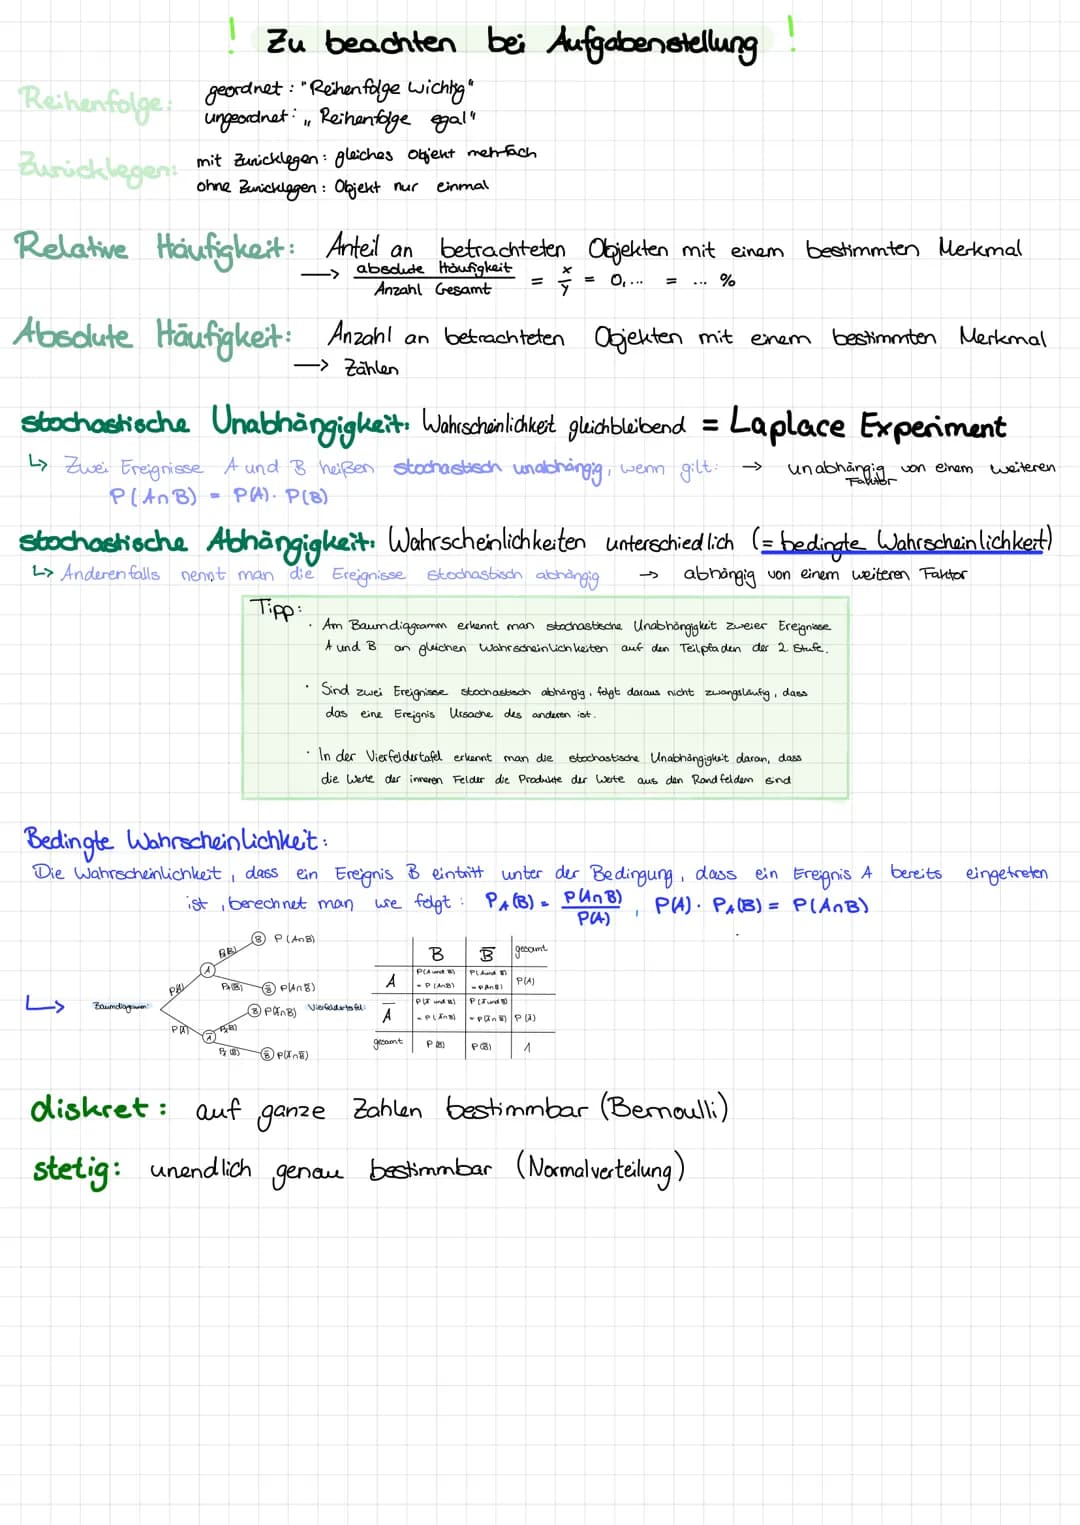 ! Zu beachten bei Aufgabenstellung !
Reihenfolge: geordnet: "Reihenfolge wichtig"
ungeordnet: „Reihenfolge egal"
Zurücklegen: mit Zurücklegen: gleiches Objekt mehrfach
ohne Zurücklegen: Objekt nur einmal
Relative Häufigkeit: Anteil an betrachteten Objekten mit einem bestimmten Merkmal
→ absolute Häufigkeit / Anzahl Gesamt = x/y = 0,... = ... %
Absolute Häufigkeit: Anzahl an betrachteten Objekten mit einem bestimmten Merkmal
→ Zählen
stochastische Unabhängigkeit: Wahrscheinlichkeit gleichbleibend = Laplace Experiment
↳ Zwei Ereignisse A und B heißen stochastisch unabhängig, wenn gilt: → unabhängig von einem weiteren Faktor
P(A∩B) = P(A)· P(B)
stochastische Abhängigkeit: Wahrscheinlichkeiten unterschiedlich (= bedingte Wahrscheinlichkeit)
↳ Anderenfalls nennt man die Ereignisse stochastisch abhängig → abhängig von einem weiteren Faktor
Tipp:
· Am Baumdiagramm erkennt man stochastische Unabhängigkeit zweier Ereignisse
A und B an gleichen Wahrscheinlichkeiten auf den Teilpfaden der 2 Stufe.
· Sind zwei Ereignisse stochastisch abhängig, folgt daraus nicht zwangsläufig, dass
das eine Ereignis Ursache des anderen ist.
· In der Vierfeldertafel erkennt man die stochastische Unabhängigkeit daran, dass
die Werte der inneren Felder die Produkte der Werte aus den Randfeldern sind
Bedingte Wahrscheinlichkeit:
Die Wahrscheinlichkeit, dass ein Ereignis B eintritt unter der Bedingung, dass ein Ereignis A bereits eingetreten
ist, berechnet man wie folgt: P_A(B) = P(A∩B) / P(A) , P(A)· P_A(B) = P(A∩B)
↳ Baumdiagramm:
P(A) A P_A(B) B P(A∩B)
P_A(B̅) B̅ P(A∩B̅)
P(A̅) A̅ P_A̅(B) B P(A̅∩B)
P_A̅(B̅) B̅ P(A̅∩B̅)
Vierfeldertafel:
B B̅ gesamt
A P(A und B) P(A und B̅)
= P(A∩B) = P(A∩B̅) P(A)
A̅ P(A̅ und B) P(A̅ und B̅)
= P(A̅∩B) = P(A̅∩B̅) P(A̅)
gesamt P(B) P(B̅) 1
diskret: auf ganze Zahlen bestimmbar (Bernoulli)
stetig: unendlich genau bestimmbar (Normalverteilung)